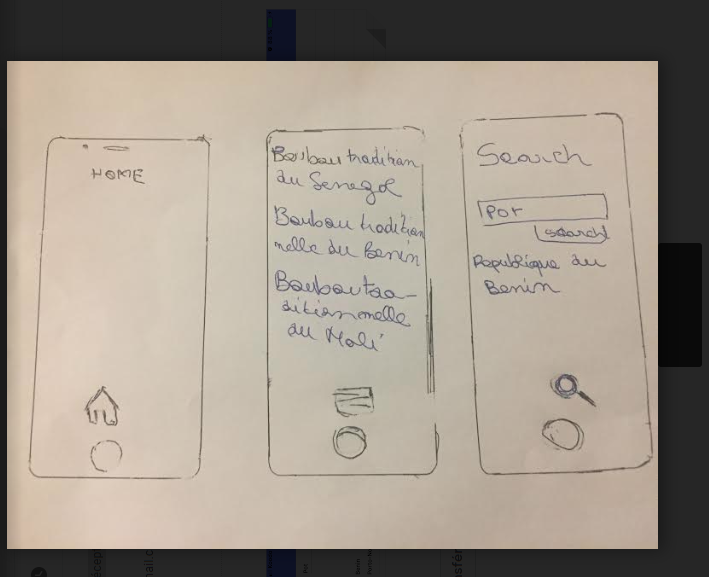 HOME
Boubou tradition
du Senegal
Boubou tradition
nelle du Benin
Boubou tra-
ditionnelle
du Mali
Search
Por
search
Republique du
Benin